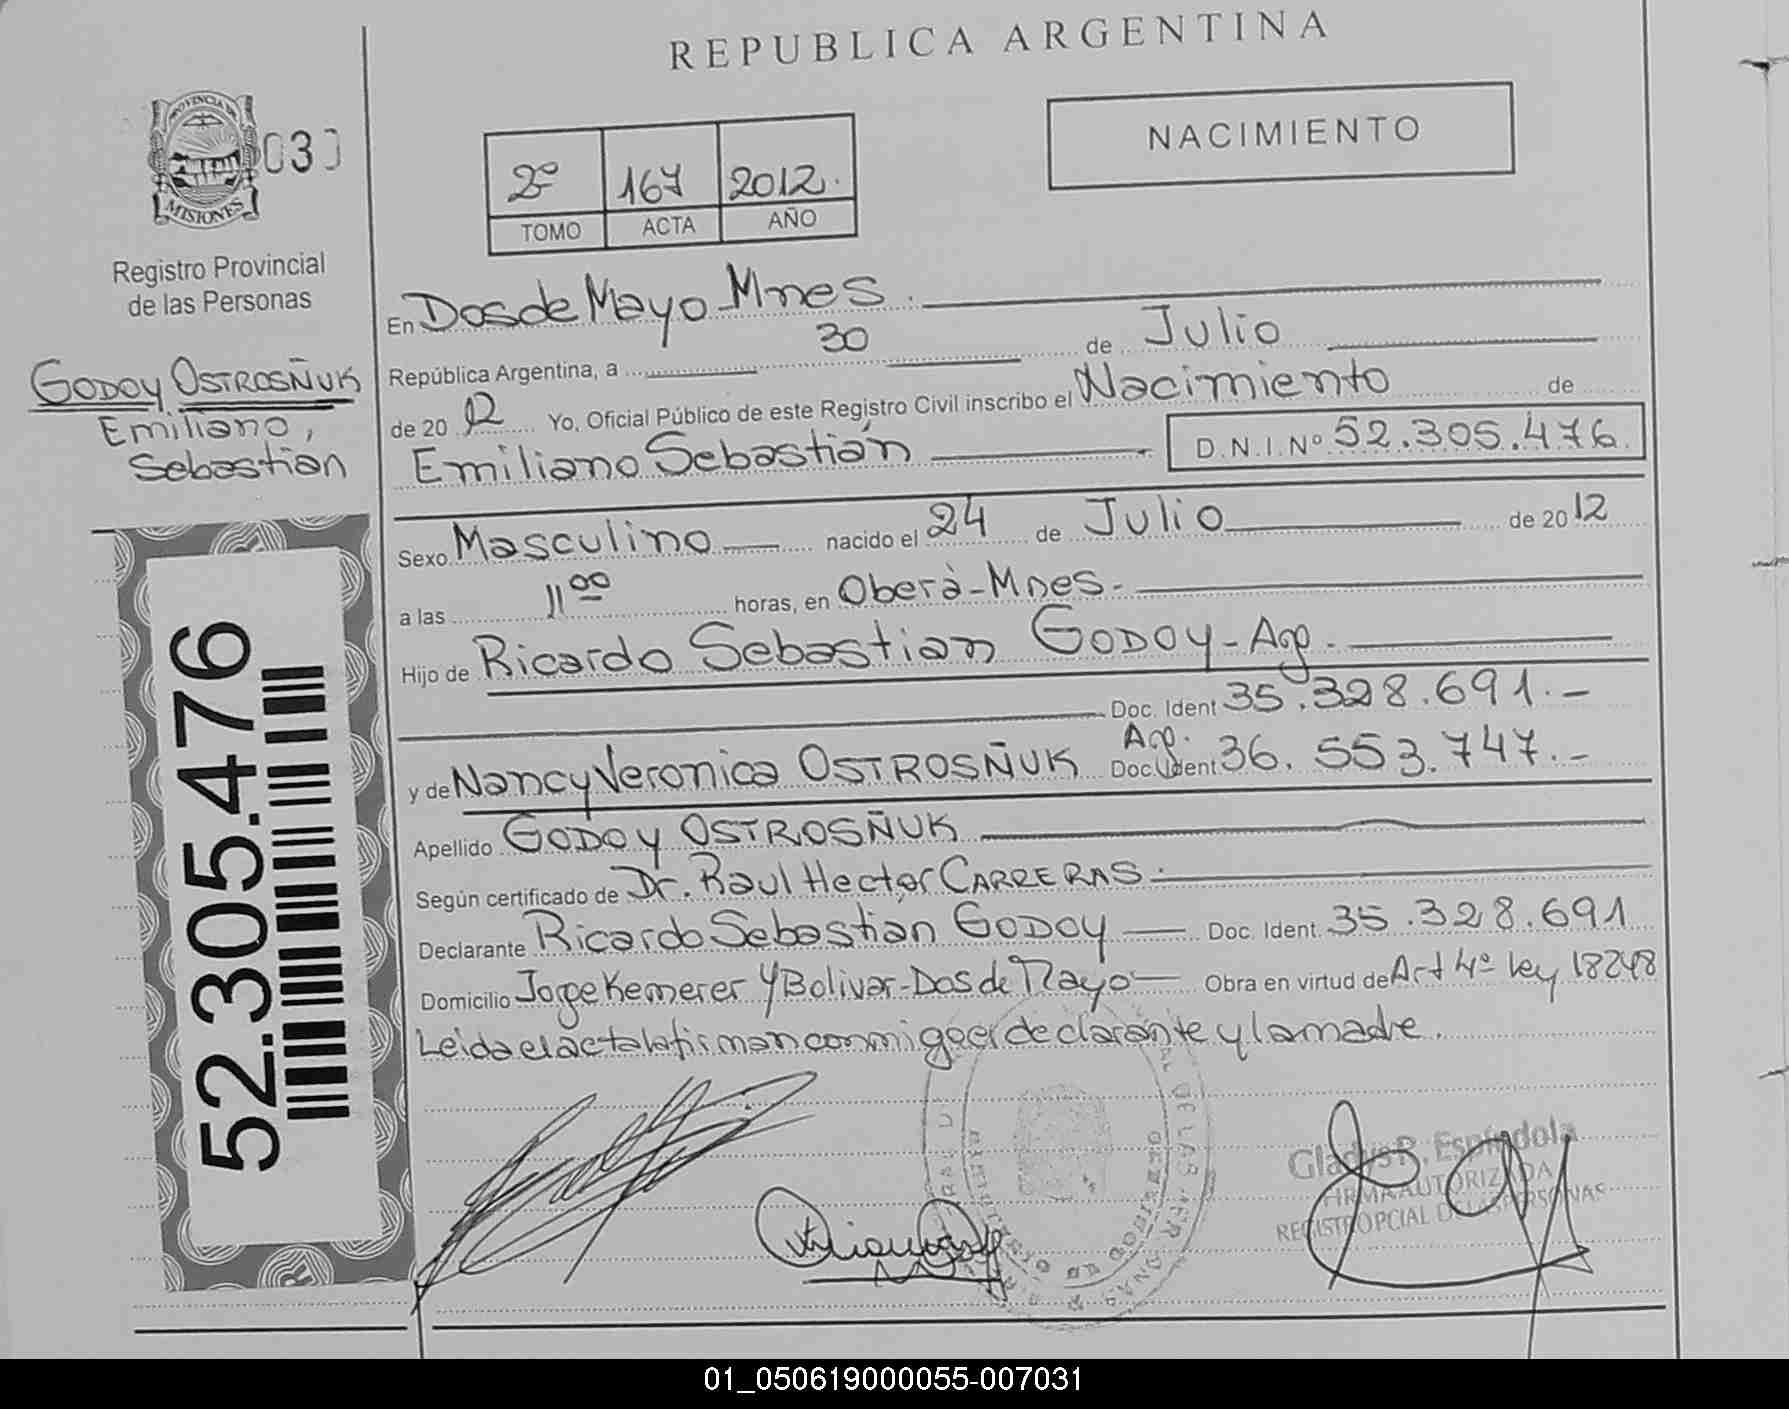 REPUBLICA ARGENTINA
NACIMIENTO
PROVINCIA DE
MISIONES
03
2º 167 2012.
TOMO ACTA AÑO
Registro Provincial
de las Personas
GODOY OSTROSÑUK
Emiliano,
Sebastian
52.305.476
En Dos de Mayo Mnes.
República Argentina, a 30 de Julio
de 2012 Yo, Oficial Público de este Registro Civil inscribo el Nacimiento de
Emiliano Sebastián D.N.I.Nº 52.305.476.
Sexo Masculino nacido el 24 de Julio de 2012
a las 11 00 horas, en Oberà-Mnes.-
Hijo de Ricardo Sebastian GODOY-Agp.
Doc. Ident 35.328.691.-
y de Nancy Veronica OSTROSÑUK Agp. Doc. Ident 36.553.747.-
Apellido GODOY OSTROSÑUK
Según certificado de Dr. Raul Hector CARRERAS.
Declarante Ricardo Sebastián GODOY Doc. Ident. 35.328.691
Domicilio Jorge Kemerer y Bolivar-Dos de Mayo Obra en virtud de Art 4º ley 18248
Leida el acta la firman conmigo el declarante y la madre.
Gladys R. Espíndola
FIRMA AUTORIZADA
REGISTRO PCIAL DE LAS PERSONAS
01_050619000055-007031